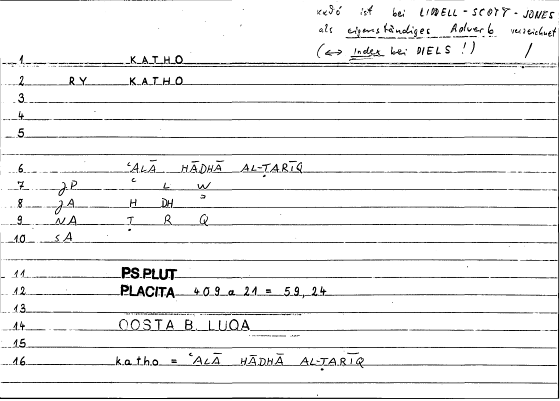 καθό ist bei LIDDELL-SCOTT-JONES
als eigenständiges Adverb verzeichnet
(↔ Index bei DIELS!) /
1 KATHO
2 RY KATHO
3
4
5
6 ʿALĀ HĀDHĀ AL-ṬARĪQ
7 gP ʿ L W
8 gA H DH ʾ
9 NA Ṭ R Q
10 sA
11 PS.PLUT
12 PLACITA 409 a 21 = 59,24
13
14 QOSTA B. LUQA
15
16 katho = ʿALĀ HĀDHĀ AL-ṬARĪQ